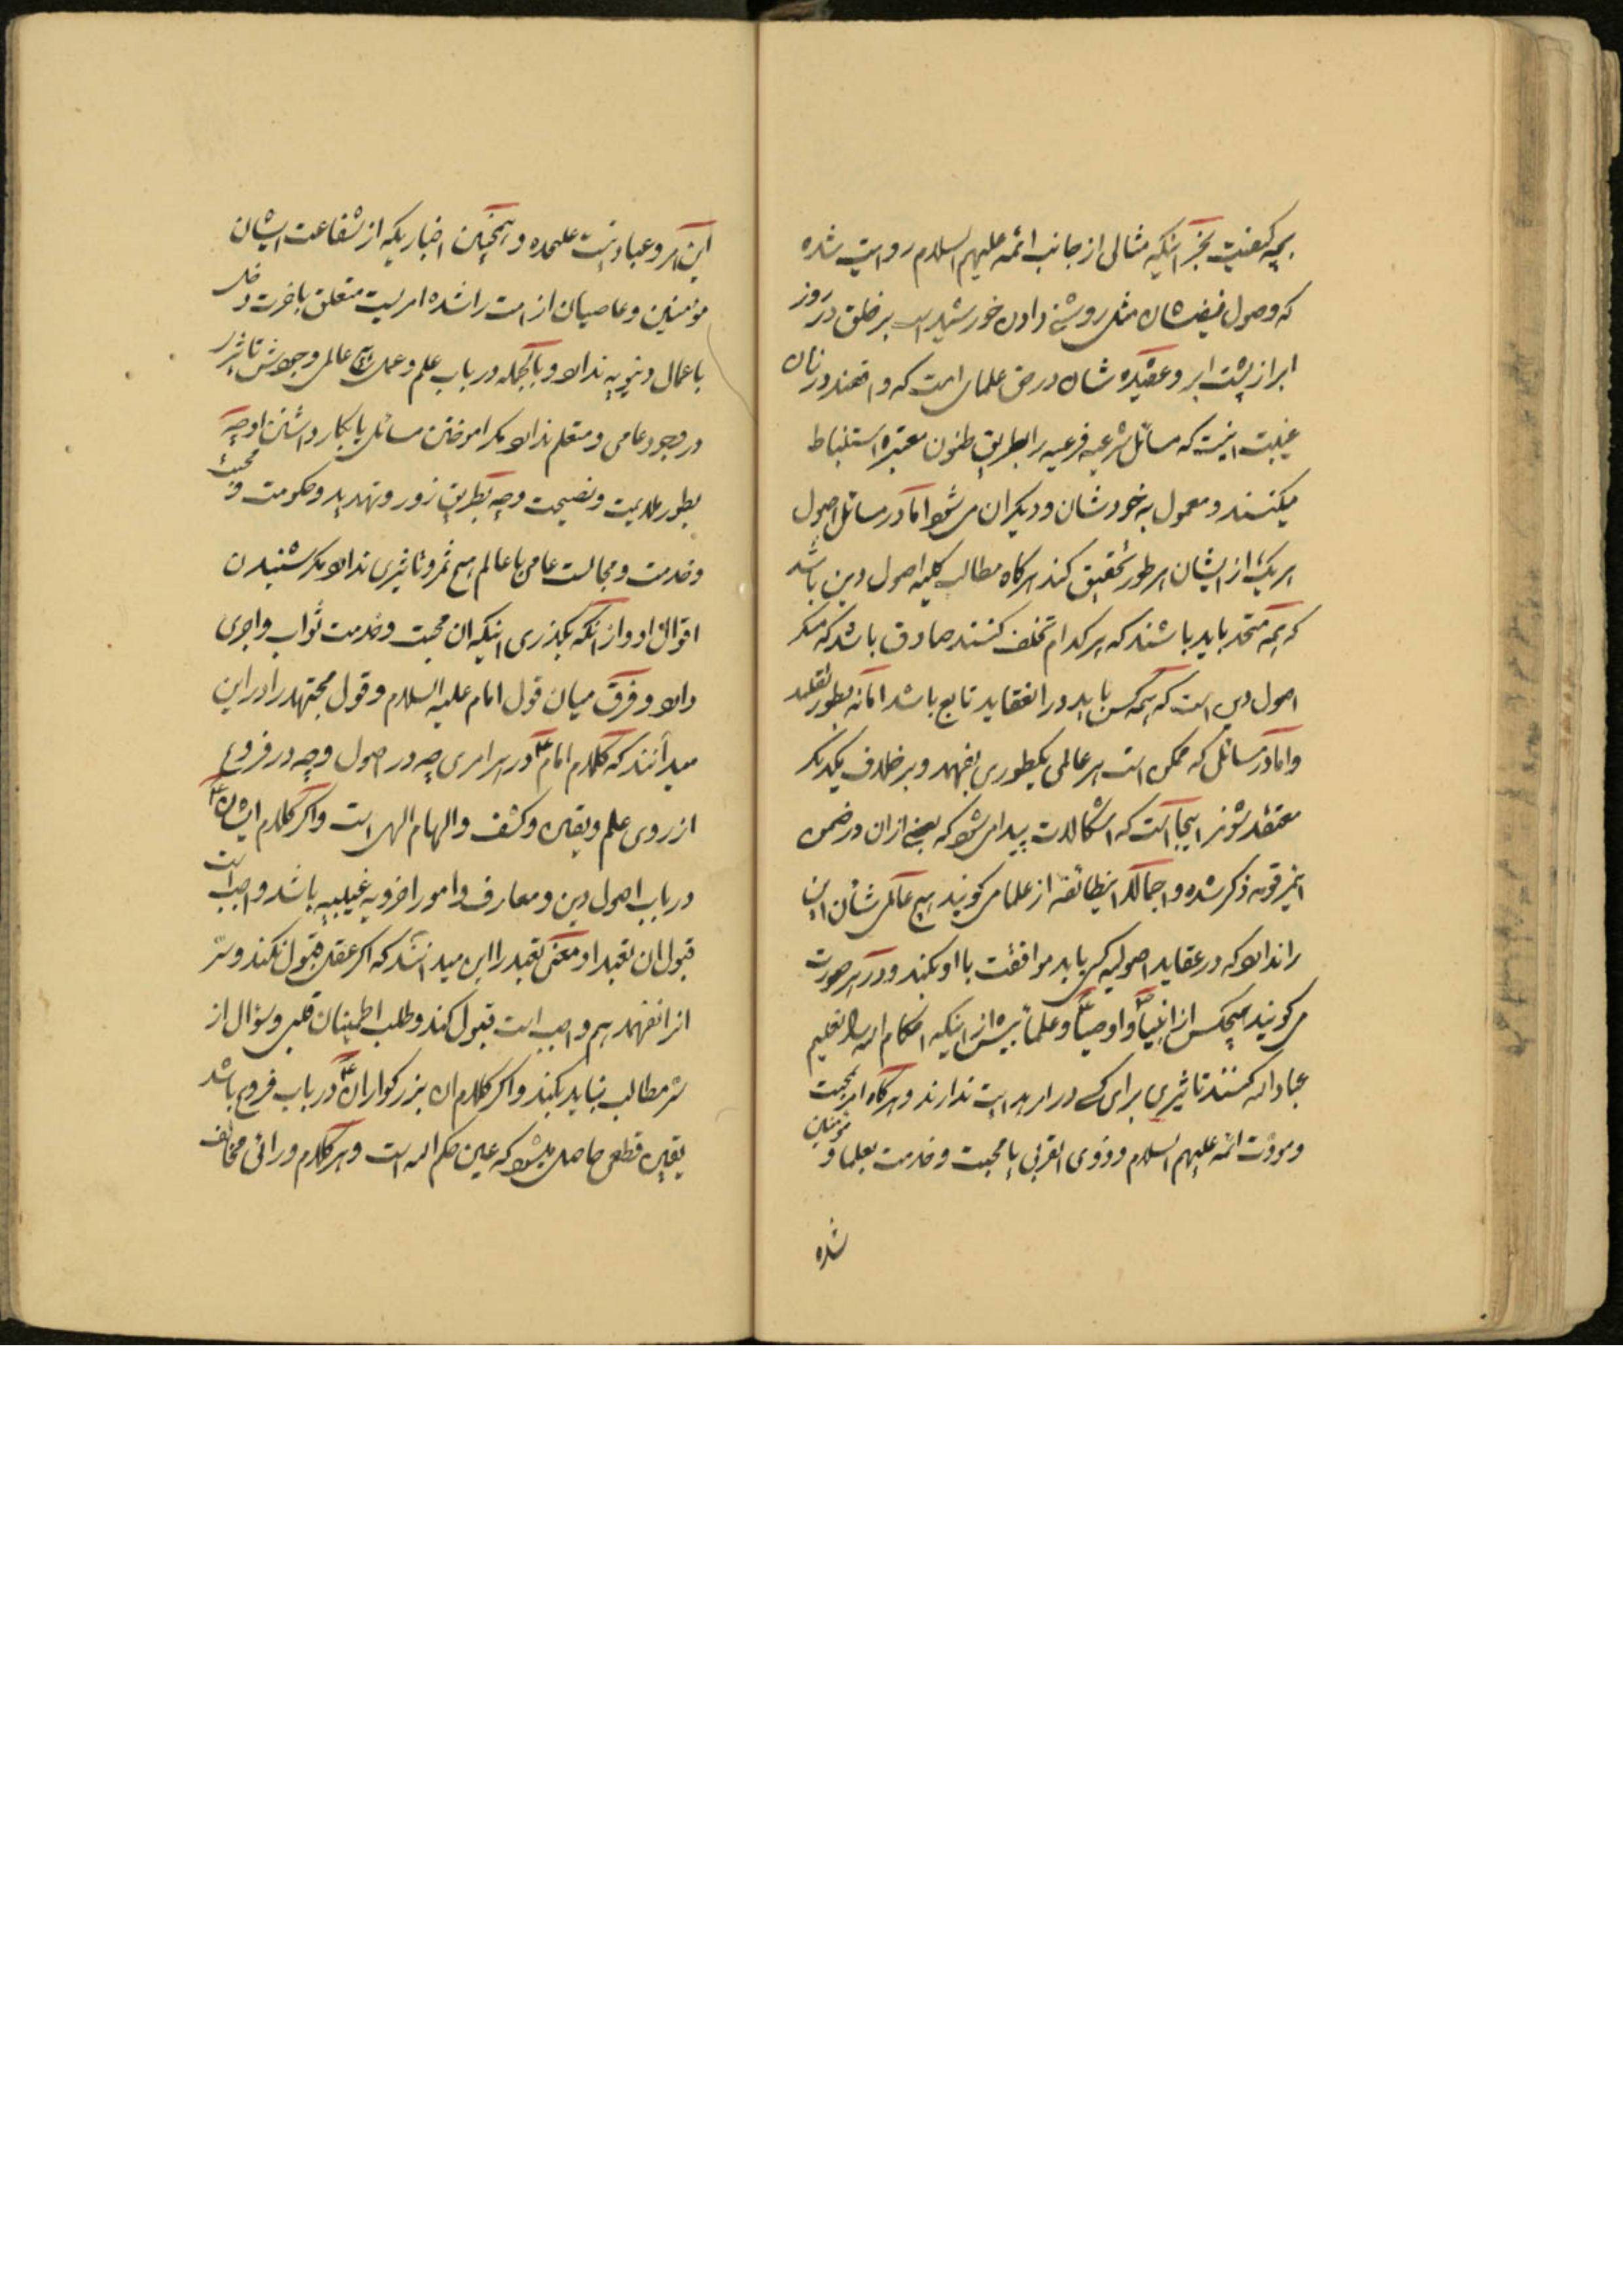 بچه کیفیت بجز اینکه مثالی از جانب ائمه علیهم السلام روایت شده
که وصول فیضشان مثل روشنی دادن خورشید است بر خلق در روز
ابر از پشت ابر و عقیده شان در حق علمای امت که واقعند در زمان
غیبت اینست که مسائل شرعیه فرعیه را بطریق ظنون معتبره استنباط
میکنند و معمول به خودشان و دیگران می شود اما در مسائل اصول
هر یک از ایشان هر طور تحقیق کند هرگاه مطالب کلیه اصول دین باشد
که همه متحد باید باشند که هر کدام تخلف کنند صادق باشد که منکر
اصول دین است که همه کس باید در انعقاید تابع باشد اما نه بطور تقلید
و اما در مسائل که ممکن است هر عالمی یکطوری بفهمد و بر خلاف یکدیگر
معتقد شوند اینجا است که اشکالات پیدا می شود که بعضی از ان در ضمن
ذکر شده و اجمالا اینطائفه از علما می گویند هیچ عالمی شأن این
را ندارد که در عقاید اصولیه کسی باید موافقت با او بکند و در هر صورت
می گویند هیچکس از انبیا و اوصیا و علما بیش از اینکه احکام الله را تعلیم
عباد الله کنند تاثیری برای کسی در امر هدایت ندارند و هرگاه امر بمحبت
و مودت ائمه علیهم السلام و ذوی القربی یا محبت و خدمت بعلما و مؤمنین
شده
این امر و عبادتیست علیحده و همچنین اخباریکه از شفاعت ایشان
مؤمنین و عاصیان از امت را شده امریست متعلق باخرت دخلی
باعمال دنیویه ندارد و بالجمله در باب علم و عمل هیچ عالمی وجودش تاثیر
در وجود عامی و متعلم ندارد مگر اموختن مسائل یا بکار داشتن او چه
بطور ملایمت و نصیحت و چه بطریق زور و تهدید و حکومت و محبت
و خدمت و مجالست عامی با عالم هیچ ثمر و تاثیری ندارد مگر شنیدن
اقوال او و از آنکه بگذری اینکه ان محبت و خدمت ثواب و اجری
دارد و فرق میان قول امام علیه السلام و قول مجتهد را در این
میدانند که کلام امام ع در هر امری چه در اصول و چه در فروع
از روی علم و یقین و کشف و الهام الهی است و اگر کلام ایشان ع
در باب اصول دین و معارف و امور اخرویه غیبیه باشد واجب است
قبول ان تعبدا و معنی تعبد را این میدانند که اگر عقل قبول نکند و سرّ
انرا نفهمد هم واجب است قبول کند و طلب اطمینان قلبی و سؤال از
سرّ مطالب نباید بکند و اگر کلام ان بزرگواران ع در باب فروع باشد
یقین قطعی حاصل میشود که عین حکم الله است و هر کلام و رائی مخالف